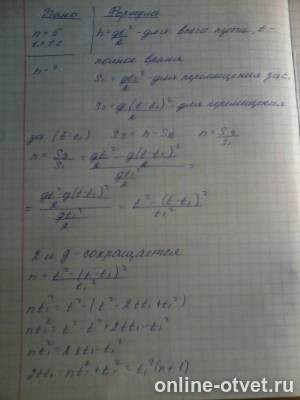 Дано Формула
n = 5
t₁ = 1 с
h = gt²/2 - для всего пути, t -
полное время
h - ?
S₁ = gt₁²/2 - для перемещения за t₁
S₂ = g(t-t₁)²/2 - для перемещения
за (t-t₁) S₃ = h - S₂ n = S₃/S₁
n = S₃/S₁ = (gt²/2 - g(t-t₁)²/2)/(gt₁²/2) =
= (gt² - g(t-t₁)²/2)/(gt₁²/2) = (t² - (t-t₁)²)/t₁²
2 и g - сокращается
n = (t² - (t-t₁)²)/t₁²
nt₁² = t² - (t² - 2tt₁ + t₁²)
nt₁² = t² - t² + 2tt₁ - t₁²
nt₁² = 2tt₁ - t₁²
2tt₁ = nt₁² + t₁² = t₁²(n+1)
online-otvet.ru